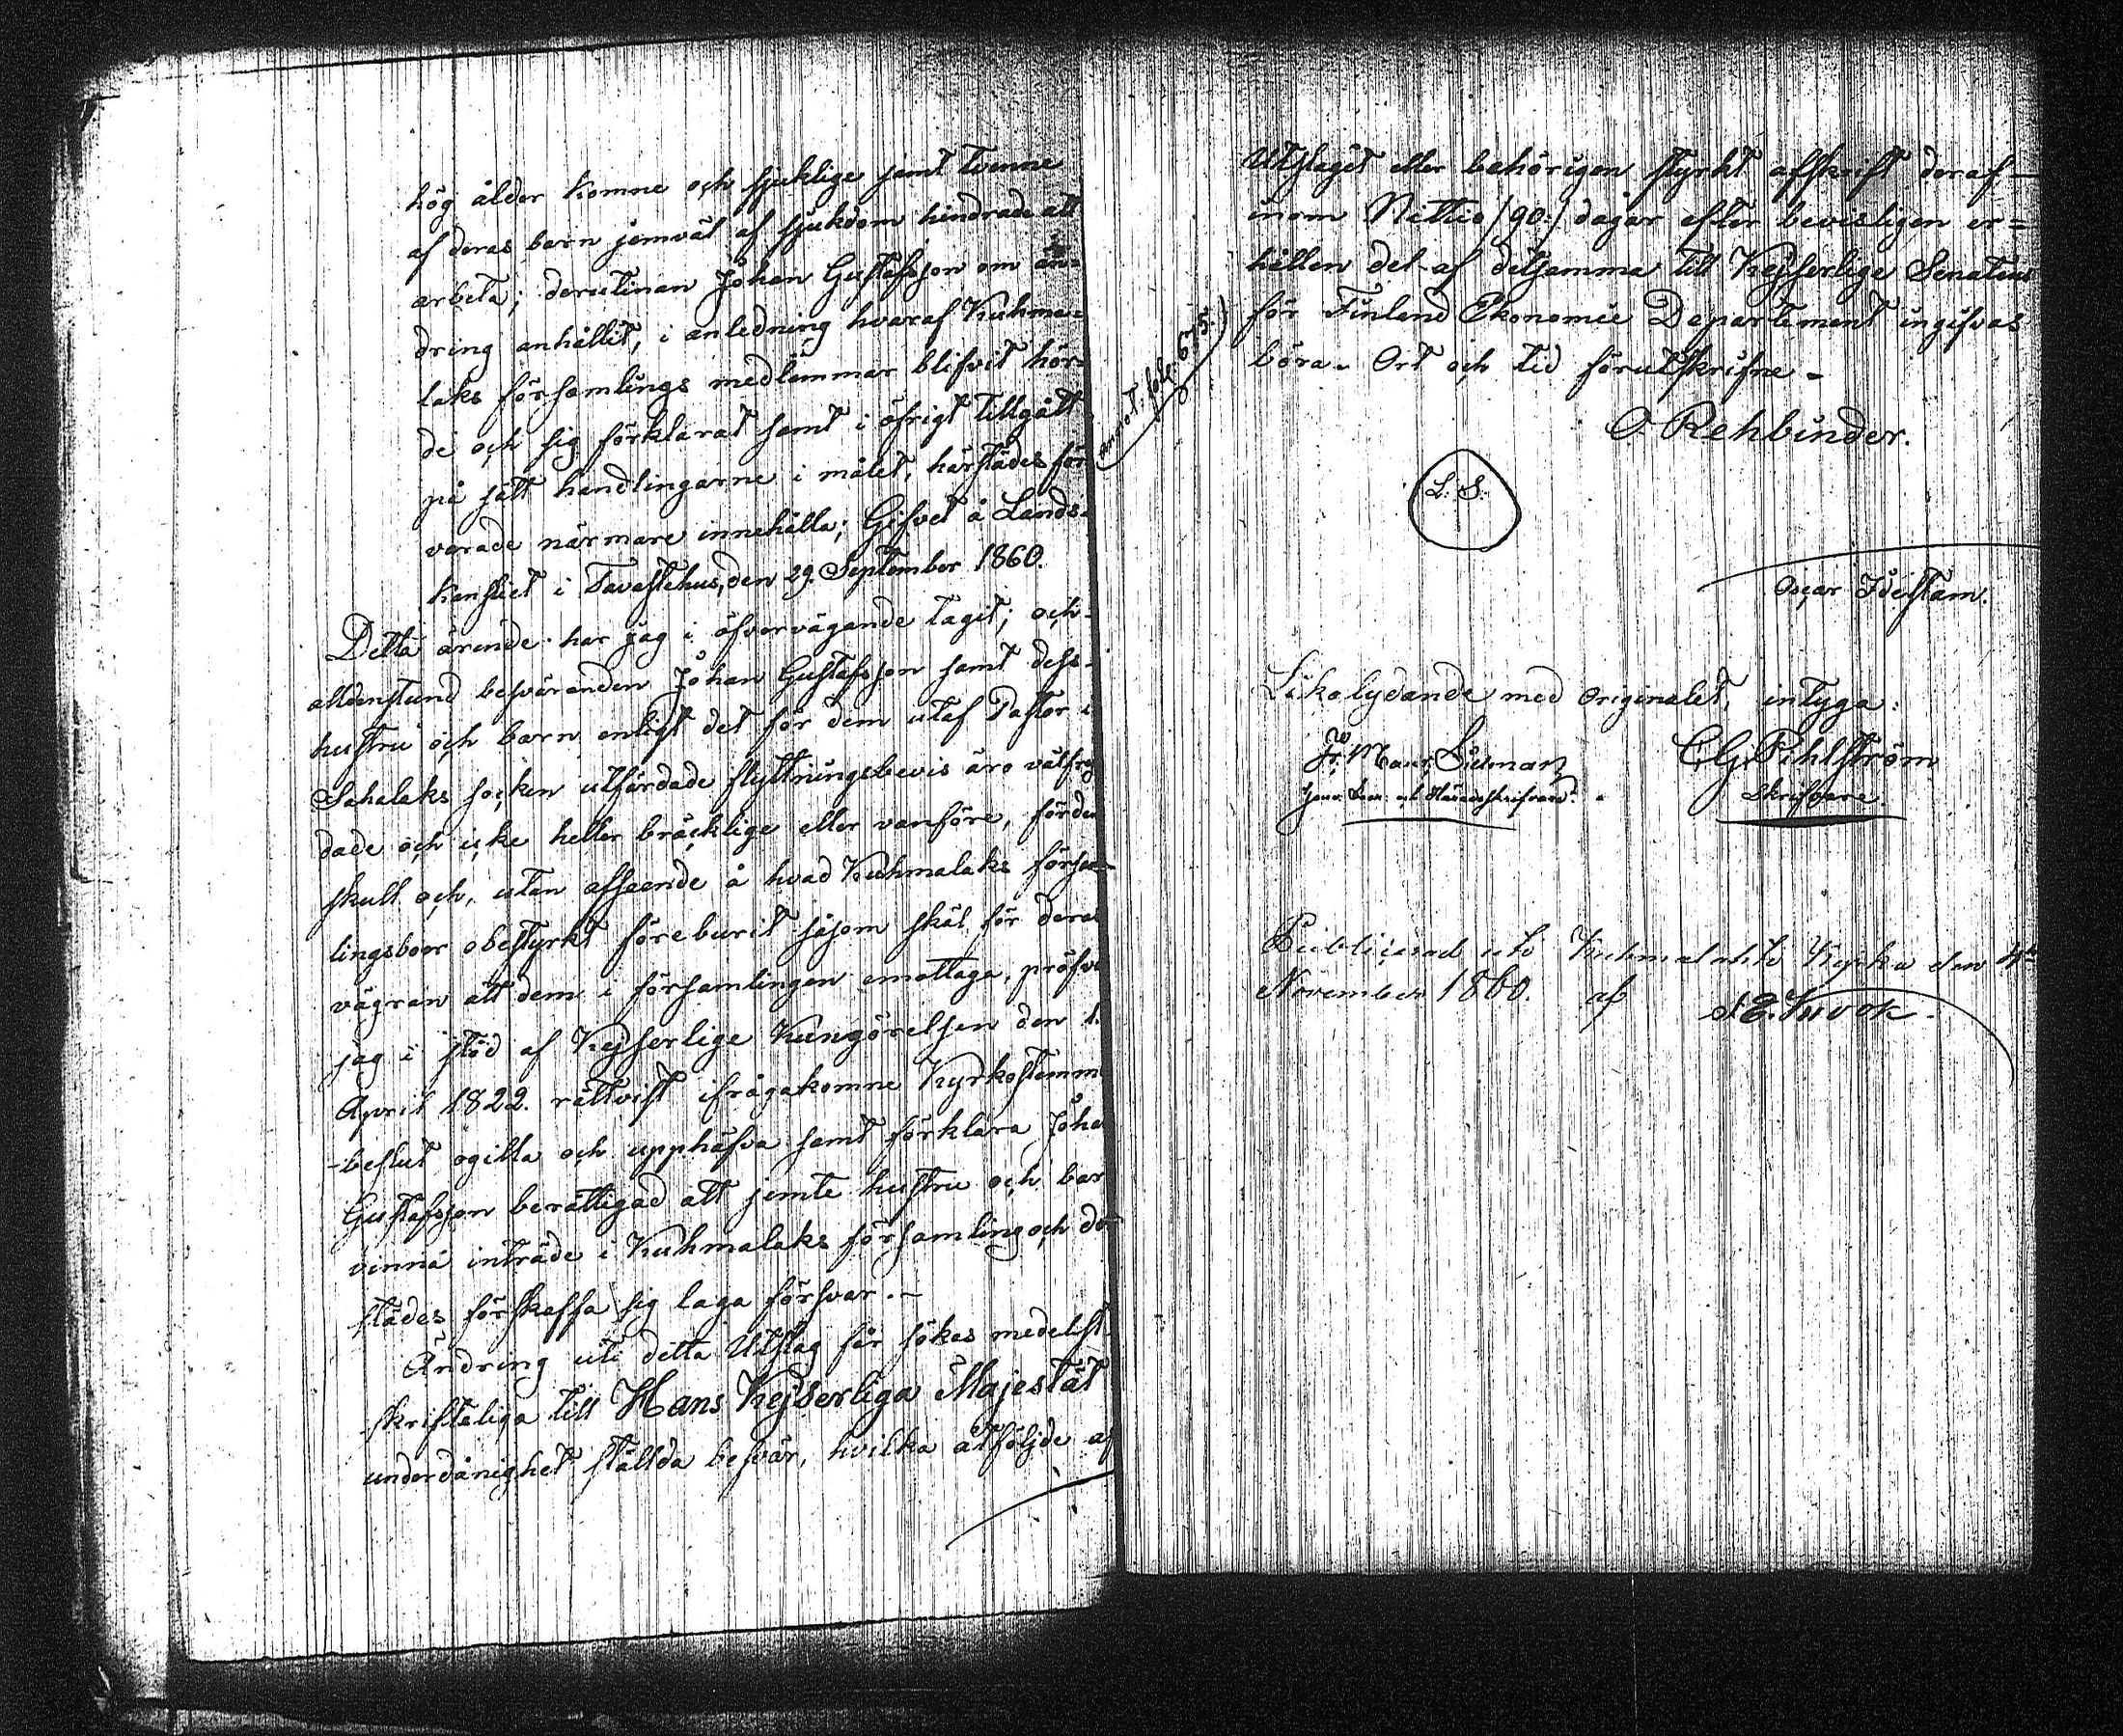 hög ålder komne och sjuklige samt tvenne
af deras barn jemväl af sjukdom hindrade att
arbeta; derutinan Johan Gustafsson om än=
dring anhållit, i anledning hvaraf Kuhma=
laks församlings medlemmar blifvit hör=
de och sig förklarat samt i öfrigt tillgått
på sätt handlingarne i målet, härstädes för
varade närmare innehålla; Gifvet å Lands=
kansliet i Tavastehus, den 29. September 1860.
Detta ärende har jag i öfvervägande tagit; och
alldenstund besväranden Johan Gustafsson samt dess
hustru och barn enligt det för dem utaf Pastor i
Sahalaks socken utfärdade flyttningsbevis äro välfrej
dade och icke heller bräcklige eller vanföre, förden
skull och, utan afseende å hvad Kuhmalaks försam
lingsboer obestyrkt föreburit såsom skäl för deras
vägran att dem i församlingen emottaga, pröfvar
jag i stöd af Kejserlige Kungörelsen den 1.
April 1822. rättvist ifrågakomne Kyrkostemm
-beslut ogilla och upphäfva samt förklara Johan
Gustafsson berättigad att jemte hustru och barn
vinna inträde i Kuhmalaks församling och der
städes förskaffa sig laga försvar.-
Ändring uti detta Utslag får sökas medelst
skrifteliga till Hans Kejserliga Majestät
underdånighet ställda besvär, hvilka åtföljde af
Utslaget eller behörigen styrkt afskrift deraf
inom Nittio /90:/ dagar efter bevisligen er=
hållen del af detsamma till Kejserlige Senatens
för Finland Ekonomie Departement ingifvas
böra. Ort och tid förutskrifne -
O. Rehbinder.
L. S.
Oscar Idestam.
Likalydande med Originalet, intyga:
C G Pihlström
Skrifvare.
Publicerad uti Kuhmalaks Kyrka den 4de
November 1860. af